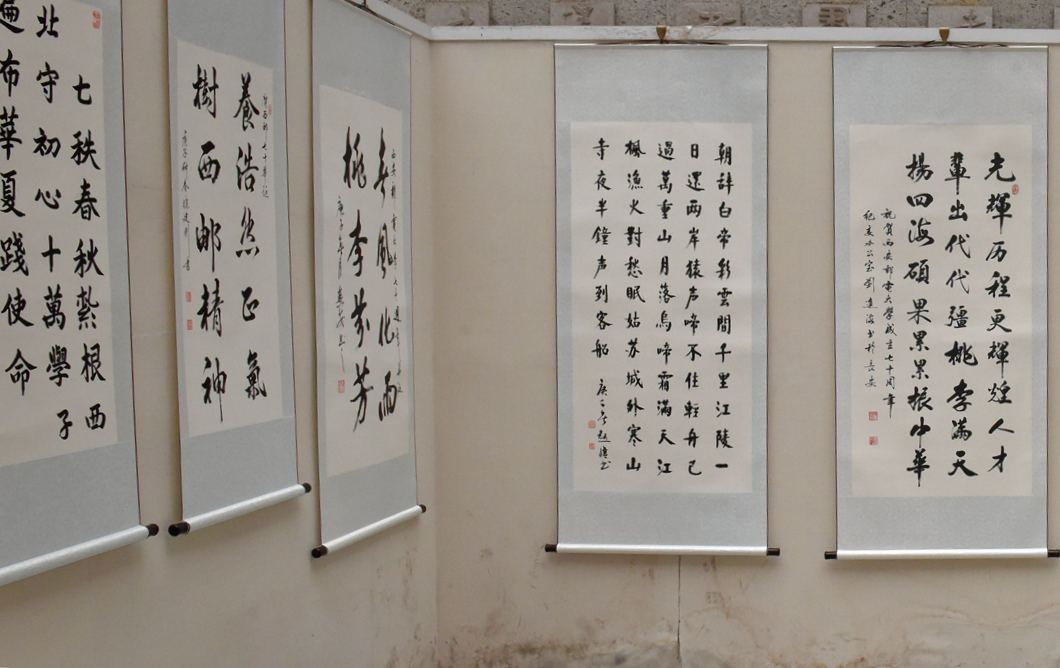 光輝历程更輝煌人才
輩出代代彊桃李滿天
揚四海碩果累累振中華
祝賀西安邮电大學成立七十周年
纪委办公室劉建海书於長安
朝辞白帝彩雲間千里江陵一
日還两岸猿声啼不住軽舟已
過萬重山月落烏啼霜滿天江
楓漁火對愁眠姑苏城外寒山
寺夜半鐘声到客船
春風化雨
桃李芬芳
賀西邮七十華诞
養浩然正氣
樹西邮精神
七秩春秋紮根西
北守初心十萬學子
遍布華夏踐使命